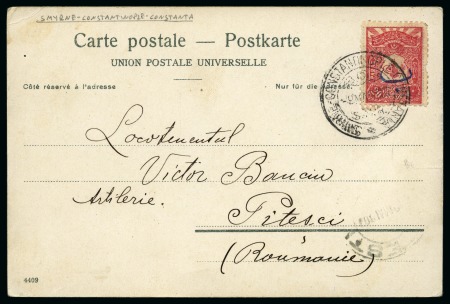 SMYRNE-CONSTANTINOPLE-CONSTANTA
Carte postale — Postkarte
UNION POSTALE UNIVERSELLE
Côté réservé à l'adresse
Nur für die Adresse
Locotenentului
Victor Banciu
Artilerie.
Pitesci
(Roumanie)
4409